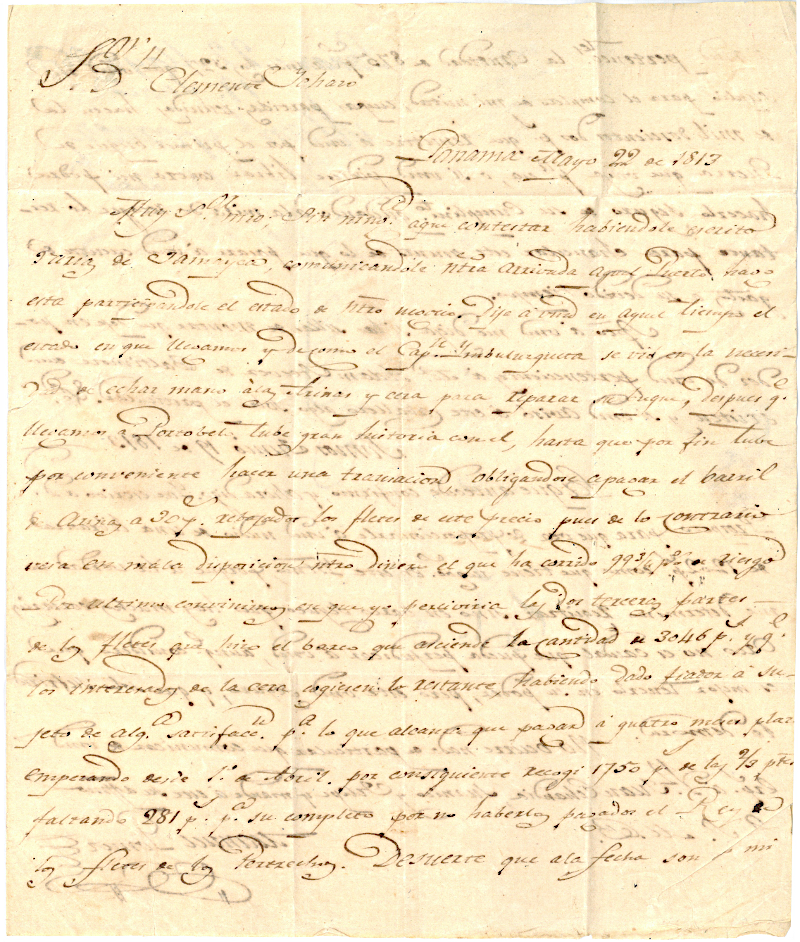 S.or
D. Clemente Ycharo
Panama Mayo 22 de 1813
Muy S.or mio: Sin ning.a aque contestar habiendole escrito
de Jamayca, comunicandole ntra arrivada aquel Puerto hago
esta participandole el estado de ntro Dije á vmd en aquel tiempo el
estado en que llevamos y de como el Cap.n se vió en la necesi-
d.d de echar mano á las Arinas y cera para reparar su Buque, despues q.e
llegamos a Portobelo tube gran historia con el, hasta que por fin tube
por conveniente hacer una transacion obligandose a pagar el barril
de Arina a 30 p.s rebajados los fletes de este precio pues de lo contrario
veia en mala disposicion ntro dinero el que ha corrido riesgo
Por ultimo convinimos en que yo perciviria las dos terceras partes
de los fletes que hizo el barco que asciende la cantidad de 3046 p.s y q.e
los interesados de la cera cogiesen lo restante habiendo dado fiador á su-
jeto de alg.a satisfac.n p.a lo que alcanza que pagar á quatro meses plazo
empezando desde 1.o de Abril. por consiguiente recogi 1750 p.s de las 2/3 p.tes
faltando 281 p.s p.a su completo por no haberlos pagados el Rey
los fletes de los Pertrechos. Desuerte que ala fecha son p mi